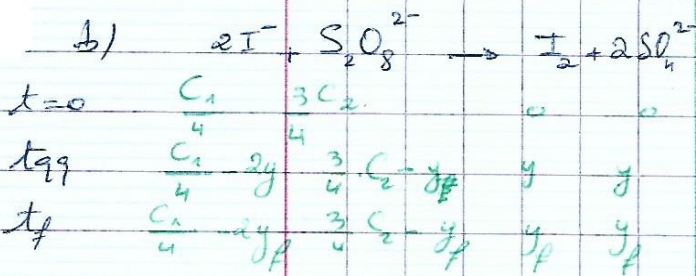 b) 2I⁻ + S₂O₈²⁻ → I₂ + 2SO₄²⁻
t=0 C₁/4 3/4 C₂. 0 0
tqq C₁/4 - 2y 3/4 . C₂ - y y y
tf C₁/4 - 2yf 3/4 C₂ - yf yf yf